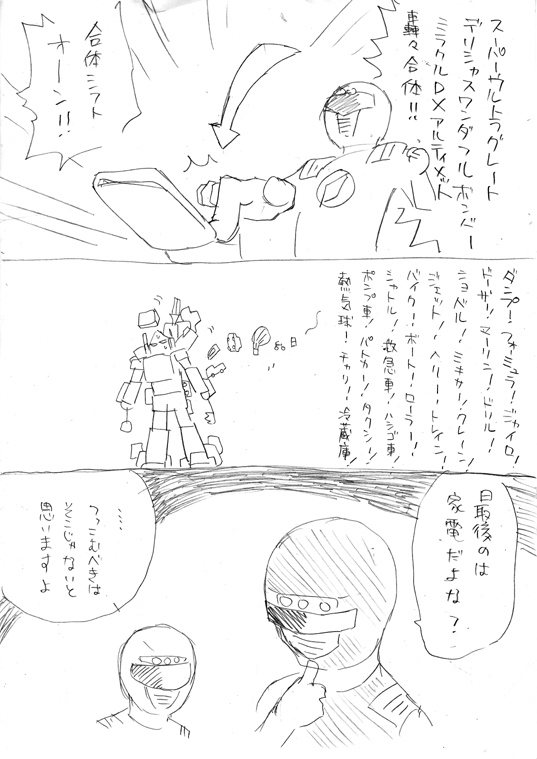 スーパーウルトラグレート
デリシャスワンダフルボンバー
ミラクルDXアルティメット
轟々合体!!
合体シフト
オーン!!
ダンプ!フォーミュラ!ジャイロ!
ドーザー!マーリン!ドリル!
ショベル!ミキサー!クレーン!
ジェット!ヘリ!トレイン!
バイク!ボート!ローラー!
シャトル!救急車!ハシゴ車!
ポンプ車!パトカー!タクシー!
熱気球!チャリ!冷蔵庫!
最後のは
家電だよな?
……
つっこむべきは
そこじゃないと
思いますよ